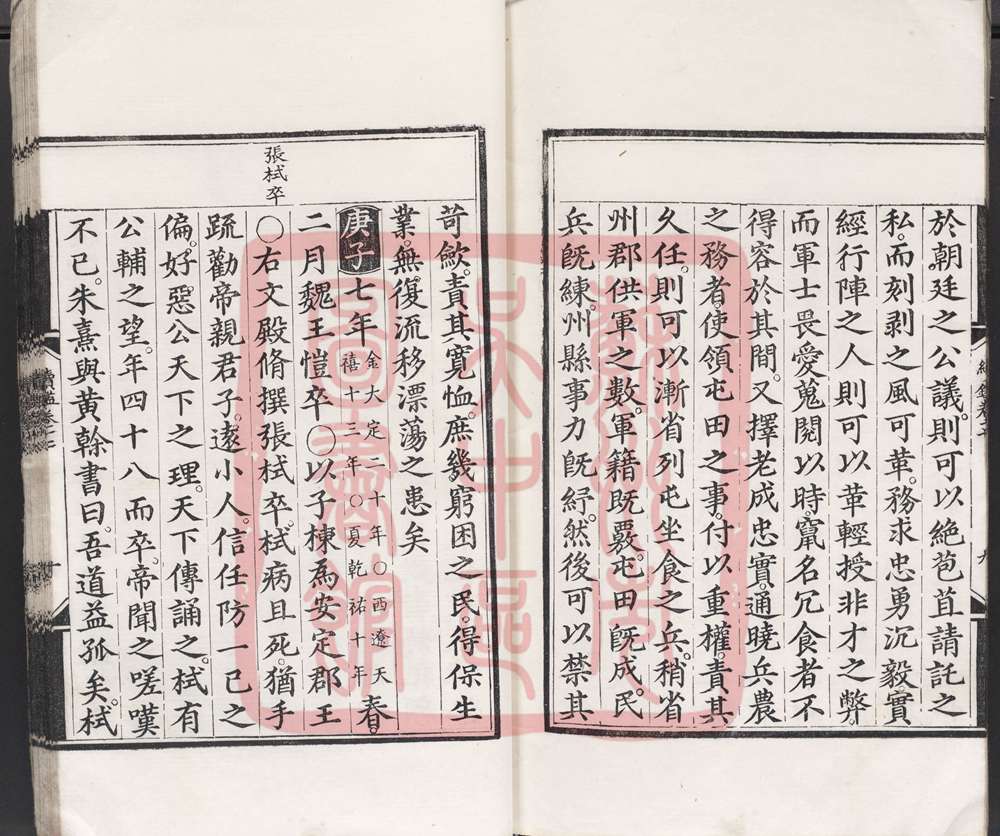 於朝廷之公議。則可以絶苞苴請託之
私。而刻剥之風可革。務求忠勇沉毅實
經行陣之人則可以革輕授非才之弊
而軍士畏愛蒐閱以時。竄名冗食者不
得容於其間。又擇老成忠實通曉兵農
之務者。使領屯田之事。付以重權。責其
久任。則可以漸省列屯坐食之兵。稍省
州郡供軍之數。軍籍既覈。屯田既成。民
兵既練。州縣事力既紓。然後可以禁其
苛歛。責其寬恤。庶幾窮困之民。得保生
業。無復流移漂蕩之患矣
庚子七年金大定二十年○西遼天禧十三年○夏乾祐十年春。
二月魏王愷卒○以子棟為安定郡王
○右文殿脩撰張栻卒。栻病且死。猶手
疏勸帝親君子。遠小人。信任防一己之
偏。好惡公天下之理。天下傳誦之。栻有
公輔之望。年四十八而卒。帝聞之嗟嘆
不已。朱熹與黃榦書曰。吾道益孤矣。栻
張栻卒
蘇州市
圖書館